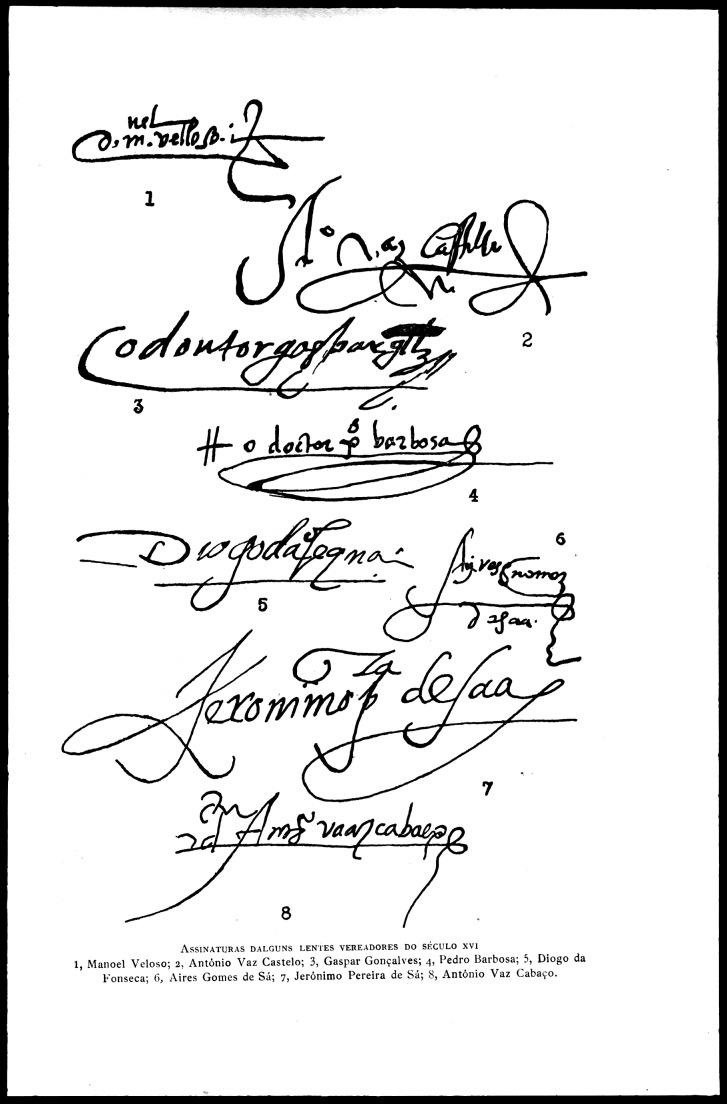 nel
o, m. velloso. i
1
Ant.º Vaz Castello
2
o doutor gaspar glz
3
o doctor p.º barbosa
4
Diogo da fonsequa
5
6
Ayres gomez
desaa.
Jeronimo prª de saa
7
vaaz cabaço
8
ASSINATURAS DALGUNS LENTES VEREADORES DO SÉCULO XVI
1, Manoel Veloso; 2, António Vaz Castelo; 3, Gaspar Gonçalves; 4, Pedro Barbosa; 5, Diogo da
Fonseca; 6, Aires Gomes de Sá; 7, Jerónimo Pereira de Sá; 8, António Vaz Cabaço.